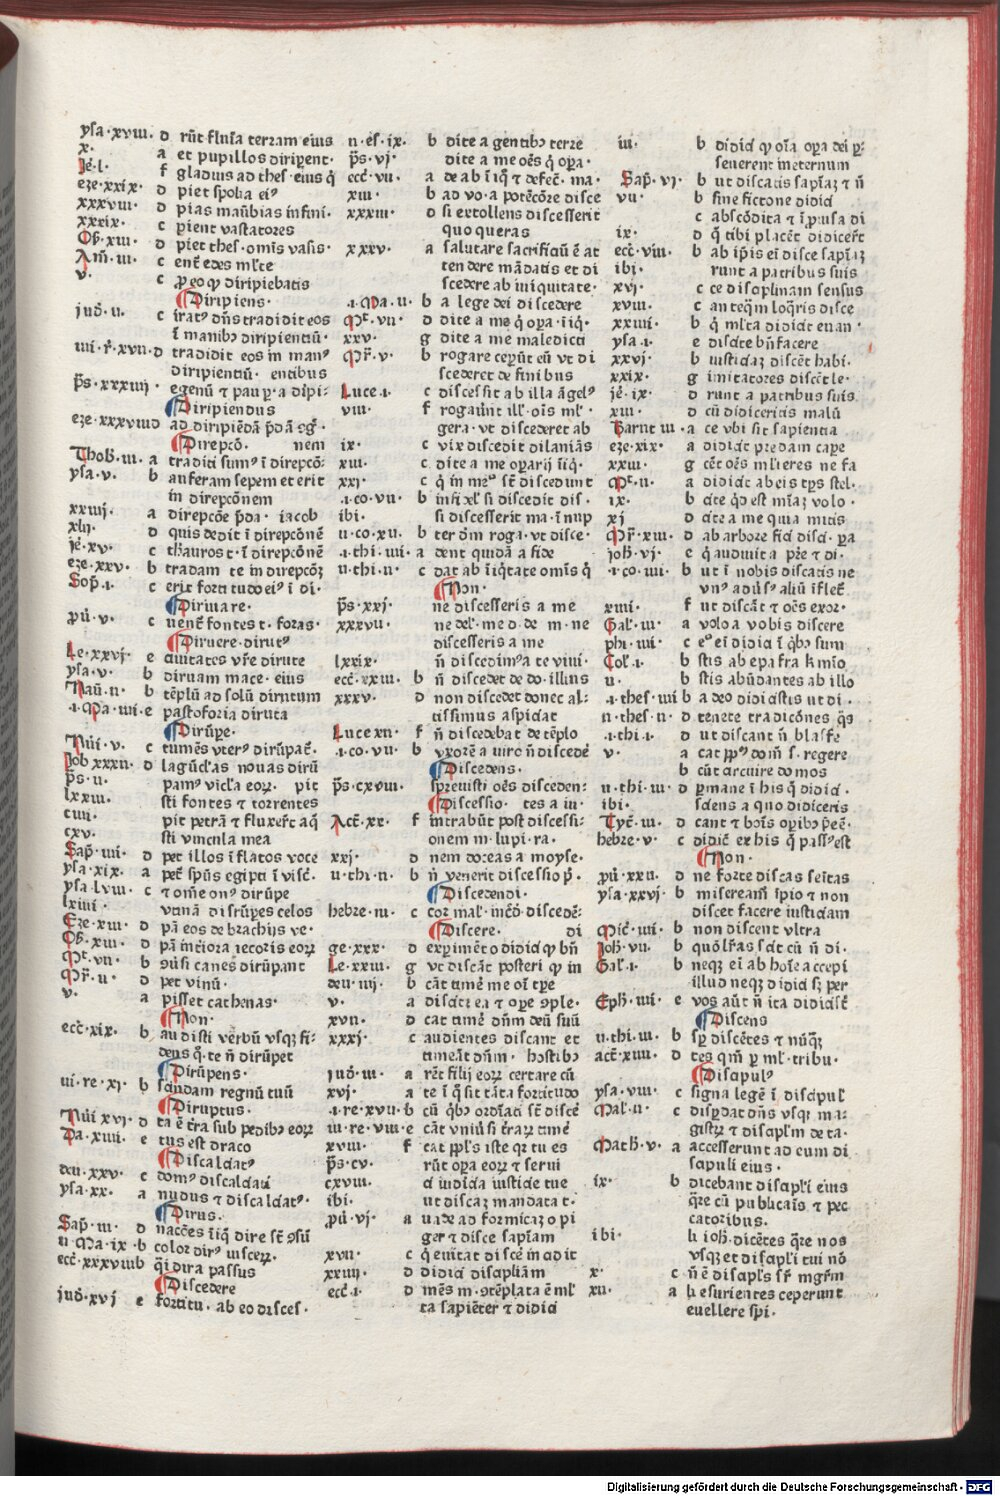 ysa·xviii· d rūt flu͛a terram eius
x· a et pupillos diriperent·
Je͛·l· f gladius ad thes· eius q̄
eze·xxix· d piet spolia ei⁹
xxxviii· d pias manubias infini·
xxxix· c pient vastatores
Ob͛·xiii· d piet thes· omīs vasis·
Am͛·iii· c ent͛ edes ml͛te
v· c ꝓ eo qꝫ diripiebatis
¶Diripiens·
jud͛·ii· c irat⁹ dn̄s tradidit eos
ī manibꝫ diripientiū·
iiii·r͛·xvii·d tradidit eos in man⁹
diripientiū· entibus
p̄s·xxxiiii· egenū ⁊ paupꝑ·a diripi·
¶Diripiendus
eze·xxxviii d ad diripiēdā p̄dā
¶Direpcō· nem
Thob͛·iii· a traditi sum⁹ ī direpcō·
ysa·v· b auferam sepem et erit
in direpcōnem
xxiiij· a direpcōe p̄da· iacob
xlij· d quis dedit ī direpcōnē
je͛·xv· c thauros t· ī direpcōnē
eze·xxv· b tradam te in direpcōꝫ
Sop͛·i· c erit fortitudo ei⁹ ī di·
¶Diriuare·
pu͛·v· c uent͛ fontes t· foras·
¶Diruere·dirut⁹
Le·xxvj· e ciuitates vr͛e dirute
ysa·v· b diruam mace· eius
Naū·ii· b tēplū ad solū dirutum
·i·Ma·iiii·e pastoforia diruta
¶Dirūpe·
Nūi·v· c tumēs vter⁹ dirūpat͛·
Job xxxii· d lagūclas nouas dirū
p̄s·ii· pam⁹ vicl͛a eoꝝ· pit
lxxiii· sti fontes ⁊ torrentes
ciiii· pit petrā ⁊ fluxer͛t aq̄
cxv· sti vincula mea
Sap͛·iiii· d pet illos īflatos voce
ysa·xix· a pet͛ spūs egipti ī visc͛·
ysa·lviii· c ⁊ om͛e on⁹ dirūpe
lxiiii· vtinā disrūpes celos
Eze·xiii· d pā eos de brachijs ve·
Ob͛·xiii· d pā interiora iecoris eoꝝ
Mt͛·vii· b ꝯūsi canes dirūpant
Mr͛·ii· d pet vinū·
v· a pisset cathenas·
¶Non·
ecc͛·xix· b audisti verbū vsqꝫ fi·
dens q̄·te n̄ dirūpet
¶Dirūpens·
iii·re·xj· b scindam regnū tuū
¶Diruptus·
Nūi xvj· d ta ē tr͛a sub pedibꝫ eoꝝ
Da·xiiii· e tus est draco
¶Discalciat⁹
deu·xxv· c dom⁹ discalciati
ysa·xx· a nudus ⁊ discalciat⁹·
¶Dirus·
Sap͛·iii· d nacc͛es iniq̄ dire st͛ ꝯsū
ii·Ma·ix·b color dir⁹ visceꝝ·
ecc͛·xxxviii b q̄i dira passus
¶Discedere
jud͛·xvj e fortitu· ab eo disces·
n·es͛·ix· b dite a gentibꝫ terre
p̄s·vj· dite a me oēs q̄ oꝑa·
ecc͛·vii· a de ab īiq̄ ⁊ defec͛· ma·
xiii· b ad vo·a potēcōre disce
xxxiii· d si extollens discesserit
quo queras
xxxv· a salutare sacrificiū ē at
tendere mādatis et di
scedere ab iniquitate·
·i·Ma·ii· b a lege dei discedere
Mt͛·vii· d dite a me q̄ oꝑa·iīq̄·
xxv· g dite a me maledicti
Mr͛·v· b rogare cepūt eū vt di
scederet de finibus
Luce·i· c discessit ab illa āgel⁹
viii· f rogaūnt ill͛·oīs ml͛·
gera· vt discederet ab
ix· c vix discedit dilaniās
xiii· c dite a me oꝑarij īiq̄·
xxj· c q̄ in me⁹ st͛ discedunt
·i·co·vii· b infixl͛ si discedit dis·
ibi· si discesserit ma·ī nup
ii·co·xii· b ter dn̄m roga·vt disce·
·i·thi·iiii·a dent quidā a fide
ii·thi·ii· c dat ab īiq̄tate omīs q̄
¶Non·
p̄s·xxj· ne discesseris a me
xxxvii· ne del͛·me d·de m·ne
discesseris a me
lxxix· n̄ discedim⁹a te viui·
ecc͛·xxiii· b n̄ discedet de do·illius
xxxv· d non discedet donec al·
tissimus aspiciat
Luce xii· f n̄ discedebat de tēplo
·i·co·vii· b vxorē a viro n̄ discedē
¶Discedens·
p̄s·cxviii· spreuisti oēs disceden·
¶Discessio· tes a iu·
Act͛·xx· f intrabūt post discessi·
onem m·lupi ra·
xxj· d nem doceas a moyse·
ii·thi·ii· b n̄ venerit discessio p͛·
¶Discedendi·
hebre·iii· c cor mal͛·incō·discedē·
¶Discere· di
ge·xxx· d exꝑimēto didici qꝫ bn̄
Le·xxiii· g vt discāt posteri qꝫ in
deu·iiij· b cāt timē me oī tꝑe
v· a discite ea ⁊ oꝑe ꝯple·
xvii· d cat timē dn̄m deū suū
xxxj· c audientes discant et
timeāt dn̄m· hostibꝫ
jud͛·iii· a rēt filij eoꝝ certare cū
xvj· a te ī q̄ sit tāta fortitudo
·i·re·xvii·b cū q̄bꝫ ordīati st͛ discē
iii·re·viii·e cāt vniūsi tr͛aꝝ timē
xviii· f cat ppl͛s iste qꝛ tu es
p̄s·cv· rūt oꝑa eoꝝ ⁊ serui
cxviii· d iudicia iusticie tue
ibi· ut discaꝫ mandata t·
pu͛·vj· a uade ad formicaꝫ o pi
ger ⁊ disce sapiam
xvii· c q̄ euitat discē īcidit
xxiiij· d didici disciplinam
ecc͛·i· d mēs m·ꝯtēplata ē ml͛
ta sapiēter ⁊ didici
iii· b didici qꝫ oīa oꝑa dei ꝑ·
seuerent ineternum
Sap͛·vj· b ut discatis sapīaꝫ ⁊ n̄
vii· b sine fictone didici
c abscōdita ⁊ īprouisa di
ix· d q̄ tibi placēt didicer͛t
ecc͛·viii· b ab ip̄is ei disce sapīaꝫ
ibi· runt a patribus suis
xvj· c ce disciplinam sensus
xviii· c an teq̄m loq̄ris disce
xxiiii· b q̄ ml͛ta didicit euan·
ysa·i· e discite bn̄facere
xxvj· b iusticiaꝫ discēt habi·
xxix· g imitatores discēt le·
je͛·ix· d runt a patribus suis
xiii· d cū didiceritis malū
Baruc iii·a ce vbi sit sapientia
eze·xix· a didicit predam cape
xxiii· g cēt oēs ml͛ieres ne fa
Mt͛·ii· a didicit ab eis tꝑs stel·
ix· b cite q̄d est mīaꝫ volo·
xj d cite a me quia mitis
Mr͛·xiii· d ab arbore fici disci·pa
joh͛·vj· c q̄ audiuit a pr͛e ⁊ di·
·i·co·iiii· b ut ī nobis discatis ne
vn⁹ adūs⁹ aliū īflet͛
xiiii· f ut discāt ⁊ oēs exor·
Gal͛·iii· a volo a vobis discere
phi·iiii· c e⁹ ei didici ī q̄bꝫ sum
Col͛·i· b stis ab epafra k͛mio
ii· b stis abūdantes ab illo
·i·thes͛·iiii b a deo didicistis ut di·
ii·thes·ii· d tenete tradicōnes q̄s
·i·thi·i· d ut discant n̄ blasfe
v· a cat pp̄⁹ dom͛ s·regere
b cūt arcuire domos
ii·thi·iii· d ꝑmane ī his q̄ didici·
ibi· sciens a quo didiceris
Tyt͛·iii· d cant ⁊ boīs oꝑibꝫ p̄eē·
hebre·v· c didicit͛ ex his q̄ pass⁹est
¶Non·
pu͛·xxii· d ne forte discas seītas
ysa·xxvj· b miseream͛ īpio ⁊ non
discet facere iusticiam
Mic͛·iiii· b non discent vltra
Joh͛·vii· b quōl͛ras scit cū n̄ di·
Gal͛·i· b neqꝫ ei ab hoīe accepi
illud neqꝫ didici sꝫ per
Eph͛·iiii· e vos aūt n̄ ita didicist͛
¶Discens
ii·thi·iii· b sꝑ discētes ⁊ nūq̄ꝫ
act͛·xiii· d tes qm̄ ꝑ ml͛·tribu·
¶Discipul⁹
ysa·viii· c signa legē ī discipul͛
Mal͛·ii· c disꝑdat dn̄s vsqꝫ ma·
gistꝝ ⁊ discipl͛m de ta·
Math͛·v· a accesserunt ad eum di
scipuli eius·
ix· b dicebant discipl͛i eius
q̄re cū publicaīs ⁊ pec
catoribus·
ibi· li ioh͛·dicētes q̄re nos
vsqꝫ et discipl͛i tui nō
x· c n̄ ē discipl͛s sr͛ mgr͛m
xii· a li esurientes ceperunt
euellere spi·
Digitalisierung gefördert durch die Deutsche Forschungsgemeinschaft - DFG